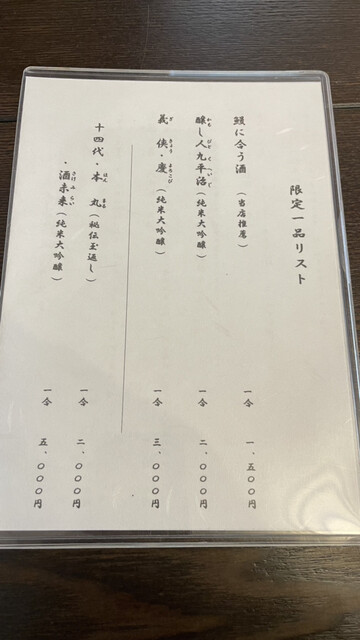 限定一品リスト
鰻に合う酒（当店推薦） 一合 一、五〇〇円
醸し人九平治（純米大吟醸） 一合 二、〇〇〇円
義侠・慶（純米大吟醸） 一合 三、〇〇〇円
十四代・本丸（秘伝玉返し） 一合 二、〇〇〇円
・酒未来（純米大吟醸） 一合 五、〇〇〇円